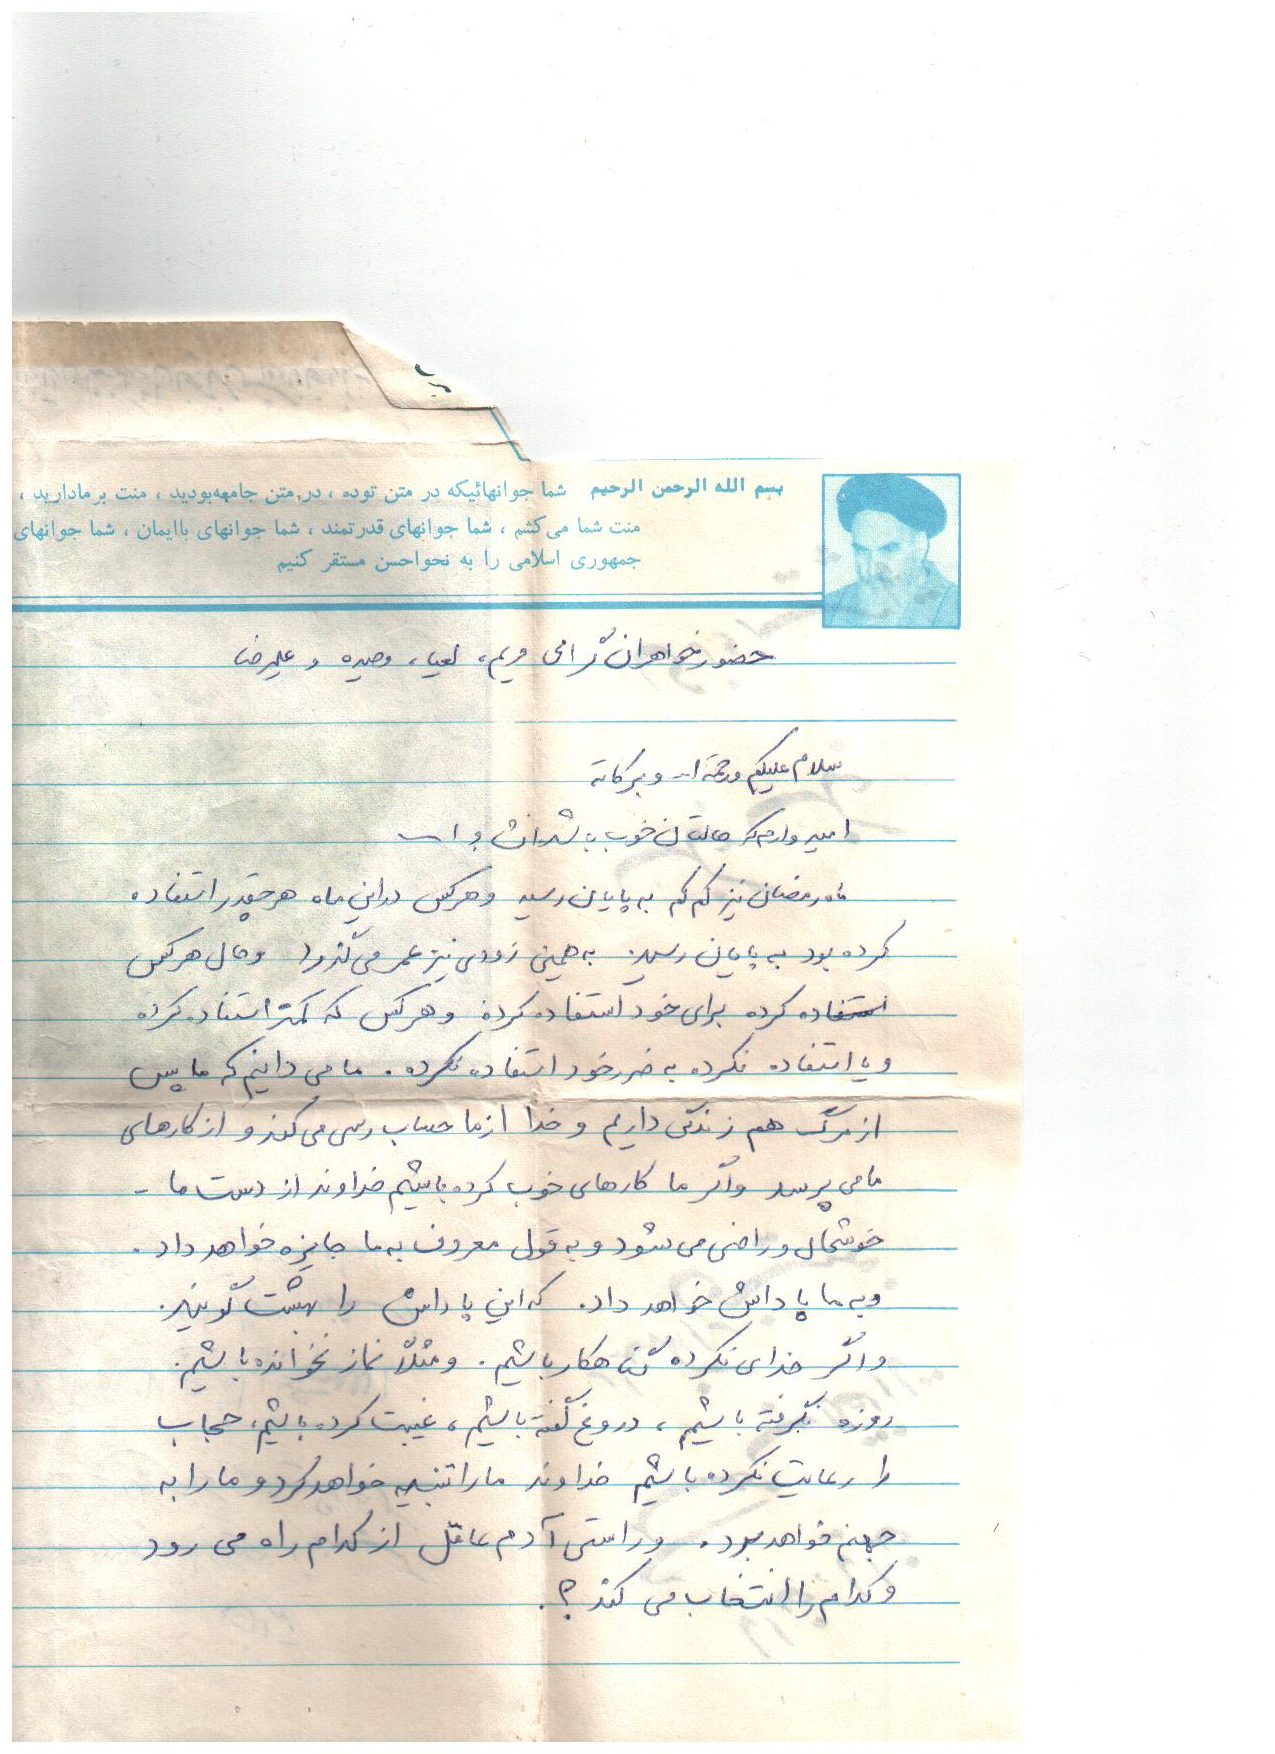 بسم الله الرحمن الرحیم شما جوانهائیکه در متن توده ، در متن جامعه‌بودید ، منت برمادارید ،
منت شما می‌کشم ، شما جوانهای قدرتمند ، شما جوانهای باایمان ، شما جوانهای
جمهوری اسلامی را به نحواحسن مستقر کنیم
حضور خواهران گرامی مریم، لعیا، وحیده و علیرضا
سلام علیکم ورحمة ا... وبرکاته
امیدوارم که حالتان خوب باشد انشاءا...
ماه رمضان نیز کم کم به پایان رسید وهرکس دراین ماه هرچقدر استفاده
کرده بود به پایان رسید. به همین زودی نیز عمر می گذرد! وحال هرکس
استفاده کرده برای خود استفاده کرده وهرکس که کمتر استفاده کرده
ویا استفاده نکرده به ضرر خود استفاده نکرده. ما می دانیم که ما پس
از مرگ هم زندگی داریم و خدا ازما حساب رسی می کند و از کارهای
ما می پرسد واگر ما کارهای خوب کرده باشیم خداوند از دست ما -
خوشحال و راضی می شود و به قول معروف به ما جایزه خواهد داد.
وبه ما پاداش خواهد داد. که این پاداش را بهشت گویند.
واگر خدای نکرده گناهکار باشیم. ومثلاً نماز نخوانده باشیم.
روزه نگرفته باشیم، دروغ گفته باشیم، غیبت کرده باشیم، حجاب
را رعایت نکرده باشیم خداوند مارا تنبیه خواهد کرد و ما را به
جهنم خواهد برد. وراستی آدم عاقل از کدام راه می رود
وکدام را انتخاب می کند؟.